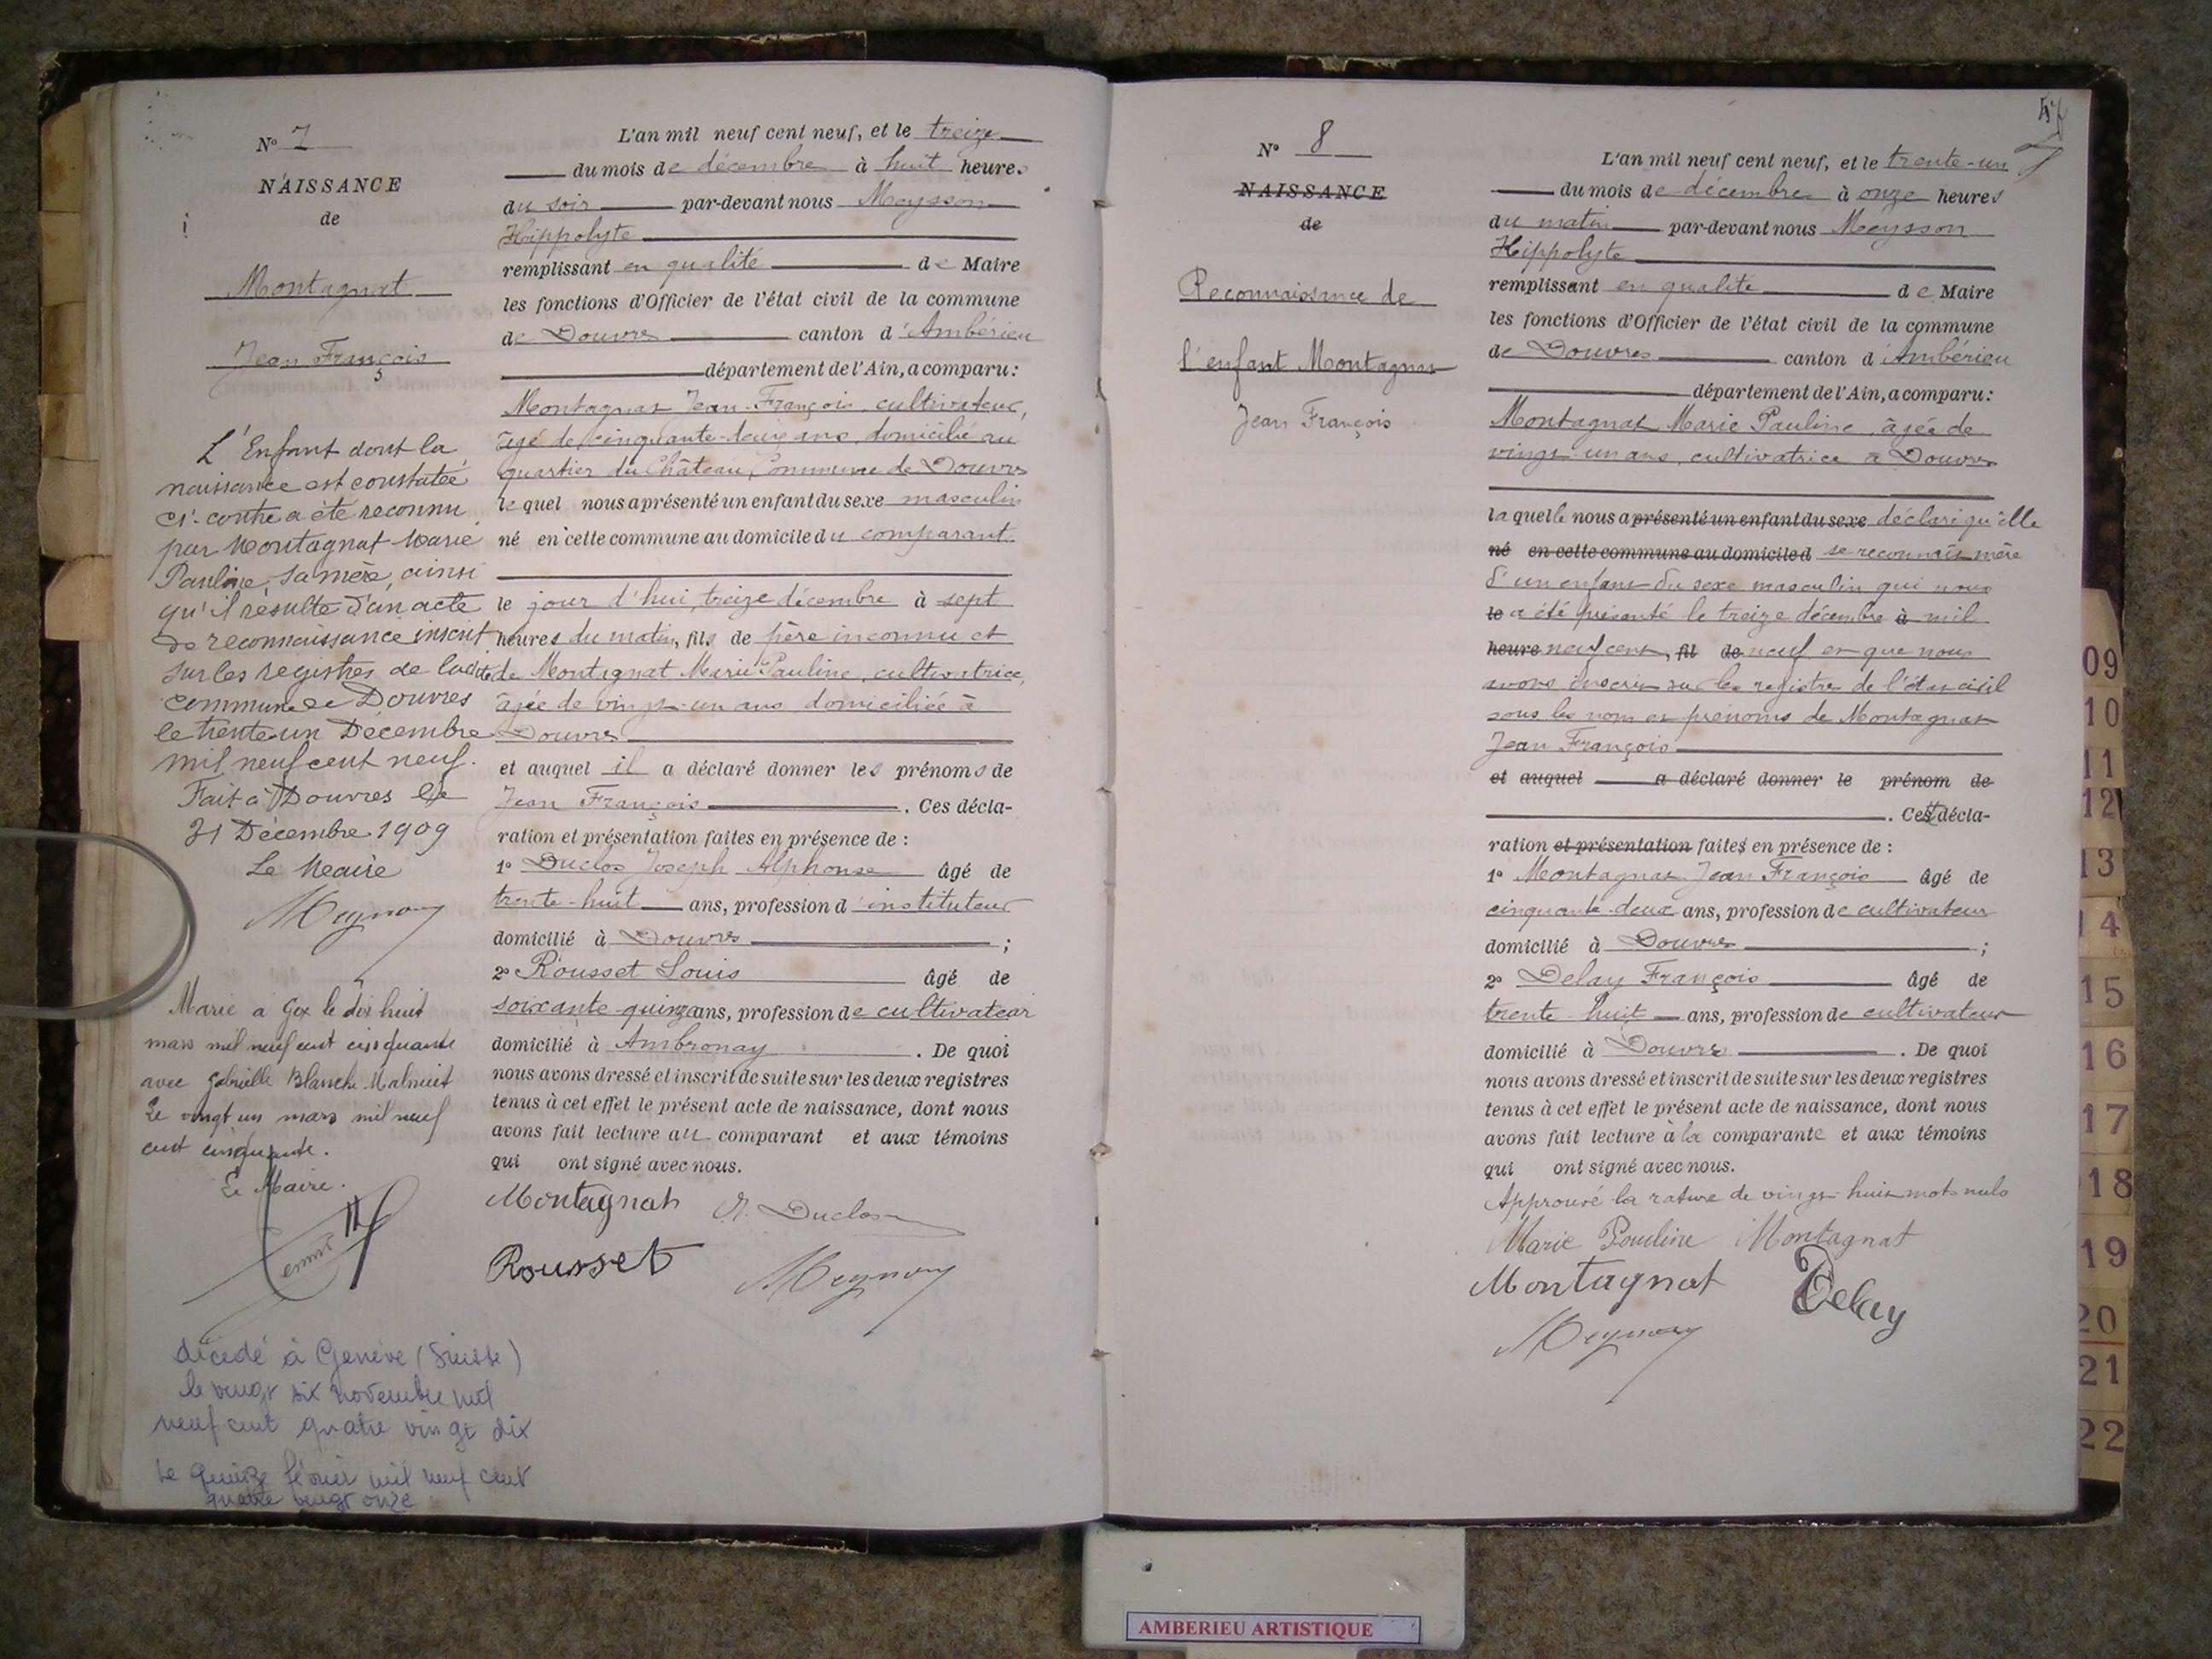 N° 7
NAISSANCE
de
Montagnat
Jean François
L'Enfant dont la
naissance est constatée
ci-contre a été reconnu
par Montagnat Marie
Pauline, sa mère, ainsi
qu'il résulte d'un acte
de reconnaissance inscrit
sur les registres de ladite
commune de Douvres
le trente un Décembre
mil neuf cent neuf.
Fait à Douvres le
31 Décembre 1909
Le Maire
Marié à Gex le dix huit
mars mil neuf cent cinquante
avec Gabrielle Blanche Malnuit
Le vingt un mars mil neuf
cent cinquante.
Le Maire.
décédé à Genève (Suisse)
le vingt six novembre mil
neuf cent quatre vingt dix
Le quinze février mil neuf cent
quatre vingt onze
L'an mil neuf cent neuf, et le treize
du mois de décembre à huit heures
du soir par-devant nous Meysson
Hippolyte
remplissant en qualité de Maire
les fonctions d'Officier de l'état civil de la commune
de Douvres canton d'Ambérieu
département de l'Ain, a comparu:
Montagnat Jean-François, cultivateur,
âgé de cinquante-deux ans, domicilié au
quartier du Château, Commune de Douvres
lequel nous a présenté un enfant du sexe masculin
né en cette commune au domicile du comparant
le jour d'hui, treize décembre à sept
heures du matin, fils de père inconnu et
de Montagnat Marie Pauline, cultivatrice,
âgée de vingt-un ans domiciliée à
Douvres
et auquel il a déclaré donner les prénoms de
Jean François. Ces décla-
ration et présentation faites en présence de :
1° Duclos Joseph Alphonse âgé de
trente-huit ans, profession d'instituteur
domicilié à Douvres ;
2° Rousset Louis âgé de
soixante-quinze ans, profession de cultivateur
domicilié à Ambronay. De quoi
nous avons dressé et inscrit de suite sur les deux registres
tenus à cet effet le présent acte de naissance, dont nous
avons fait lecture au comparant et aux témoins
qui ont signé avec nous.
Montagnat Duclos
Rousset
N° 8
NAISSANCE
de
Reconnaissance de
l'enfant Montagnat
Jean François
L'an mil neuf cent neuf, et le trente-un
du mois de décembre à onze heures
du matin par-devant nous Meysson
Hippolyte
remplissant en qualité de Maire
les fonctions d'Officier de l'état civil de la commune
de Douvres canton d'Ambérieu
département de l'Ain, a comparu:
Montagnat Marie Pauline, âgée de
vingt-un ans, cultivatrice à Douvres
laquelle nous a présenté un enfant du sexe déclaré qu'elle
né en cette commune au domicile d se reconnaît mère
d'un enfant du sexe masculin qui nous
le a été présenté le treize décembre à mil
heure neuf cent, fil de neuf et que nous
avons inscrit sur les registres de l'état civil
sous les nom et prénoms de Montagnat
Jean François
et auquel a déclaré donner le prénom de
. Cette décla-
ration et présentation faites en présence de :
1° Montagnat Jean François âgé de
cinquante-deux ans, profession de cultivateur
domicilié à Douvres ;
2° Delay François âgé de
trente-huit ans, profession de cultivateur
domicilié à Douvres. De quoi
nous avons dressé et inscrit de suite sur les deux registres
tenus à cet effet le présent acte de naissance, dont nous
avons fait lecture à la comparante et aux témoins
qui ont signé avec nous.
Approuvé la rature de vingt-huit mots nuls
Marie Pauline Montagnat
Montagnat Delay
09
10
11
12
13
14
15
16
17
18
19
20
21
22
AMBERIEU ARTISTIQUE